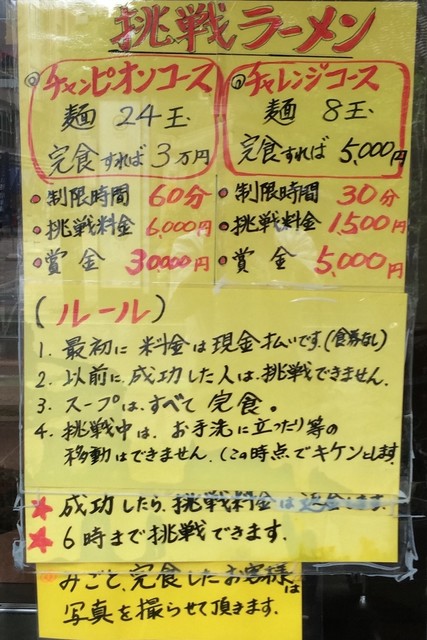 挑戦ラーメン
◎チャンピオンコース
麺 24玉
完食すれば3万円
◎チャレンジコース
麺 8玉
完食すれば5,000円
•制限時間 60分
•挑戦料金 6,000円
•賞金 30000円
•制限時間 30分
•挑戦料金 1,500円
•賞金 5,000円
(ルール)
1. 最初に料金は現金払いです。(食券なし)
2. 以前に成功した人は挑戦できません。
3. スープは、すべて完食。
4. 挑戦中は、お手洗に立ったり等の
移動はできません。(この時点でキケンとします
★成功したら、挑戦料金は返金します。
★6時まで挑戦できます。
みごと、完食したお客様は
写真を撮らせて頂きます。